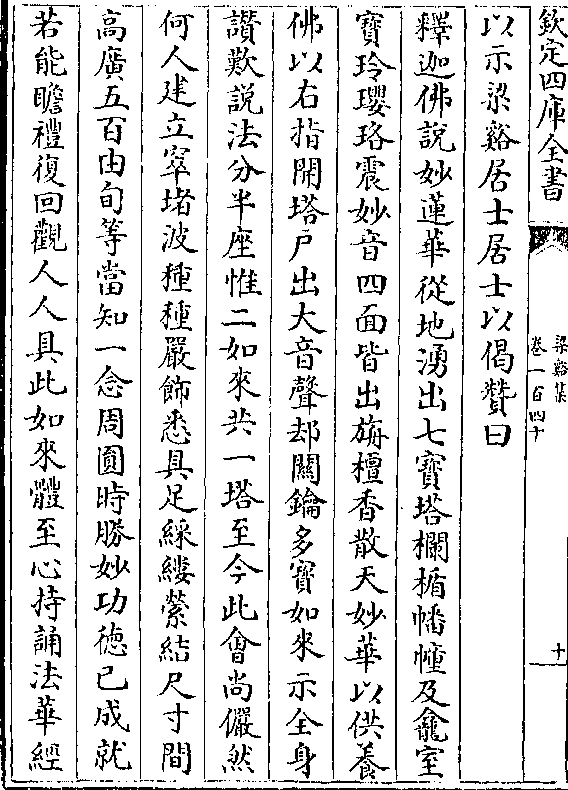 欽定四庫全書
梁谿集
卷一百四十
十
以示梁谿居士居士以偈贊曰
釋迦佛說妙蓮華從地湧出七寶塔欄楯幡幢及龕室
寶玲瓔珞震妙音四面皆出旃檀香散天妙華以供養
佛以右指開塔戶出大音聲却關鑰多寶如來示全身
讚歎說法分半座惟二如來共一塔至今此會尚儼然
何人建立窣堵波種種嚴飾悉具足綵縷縈結尺寸間
高廣五百由旬等當知一念周圓時勝妙功德已成就
若能瞻禮復回觀人人具此如來體至心持誦法華經